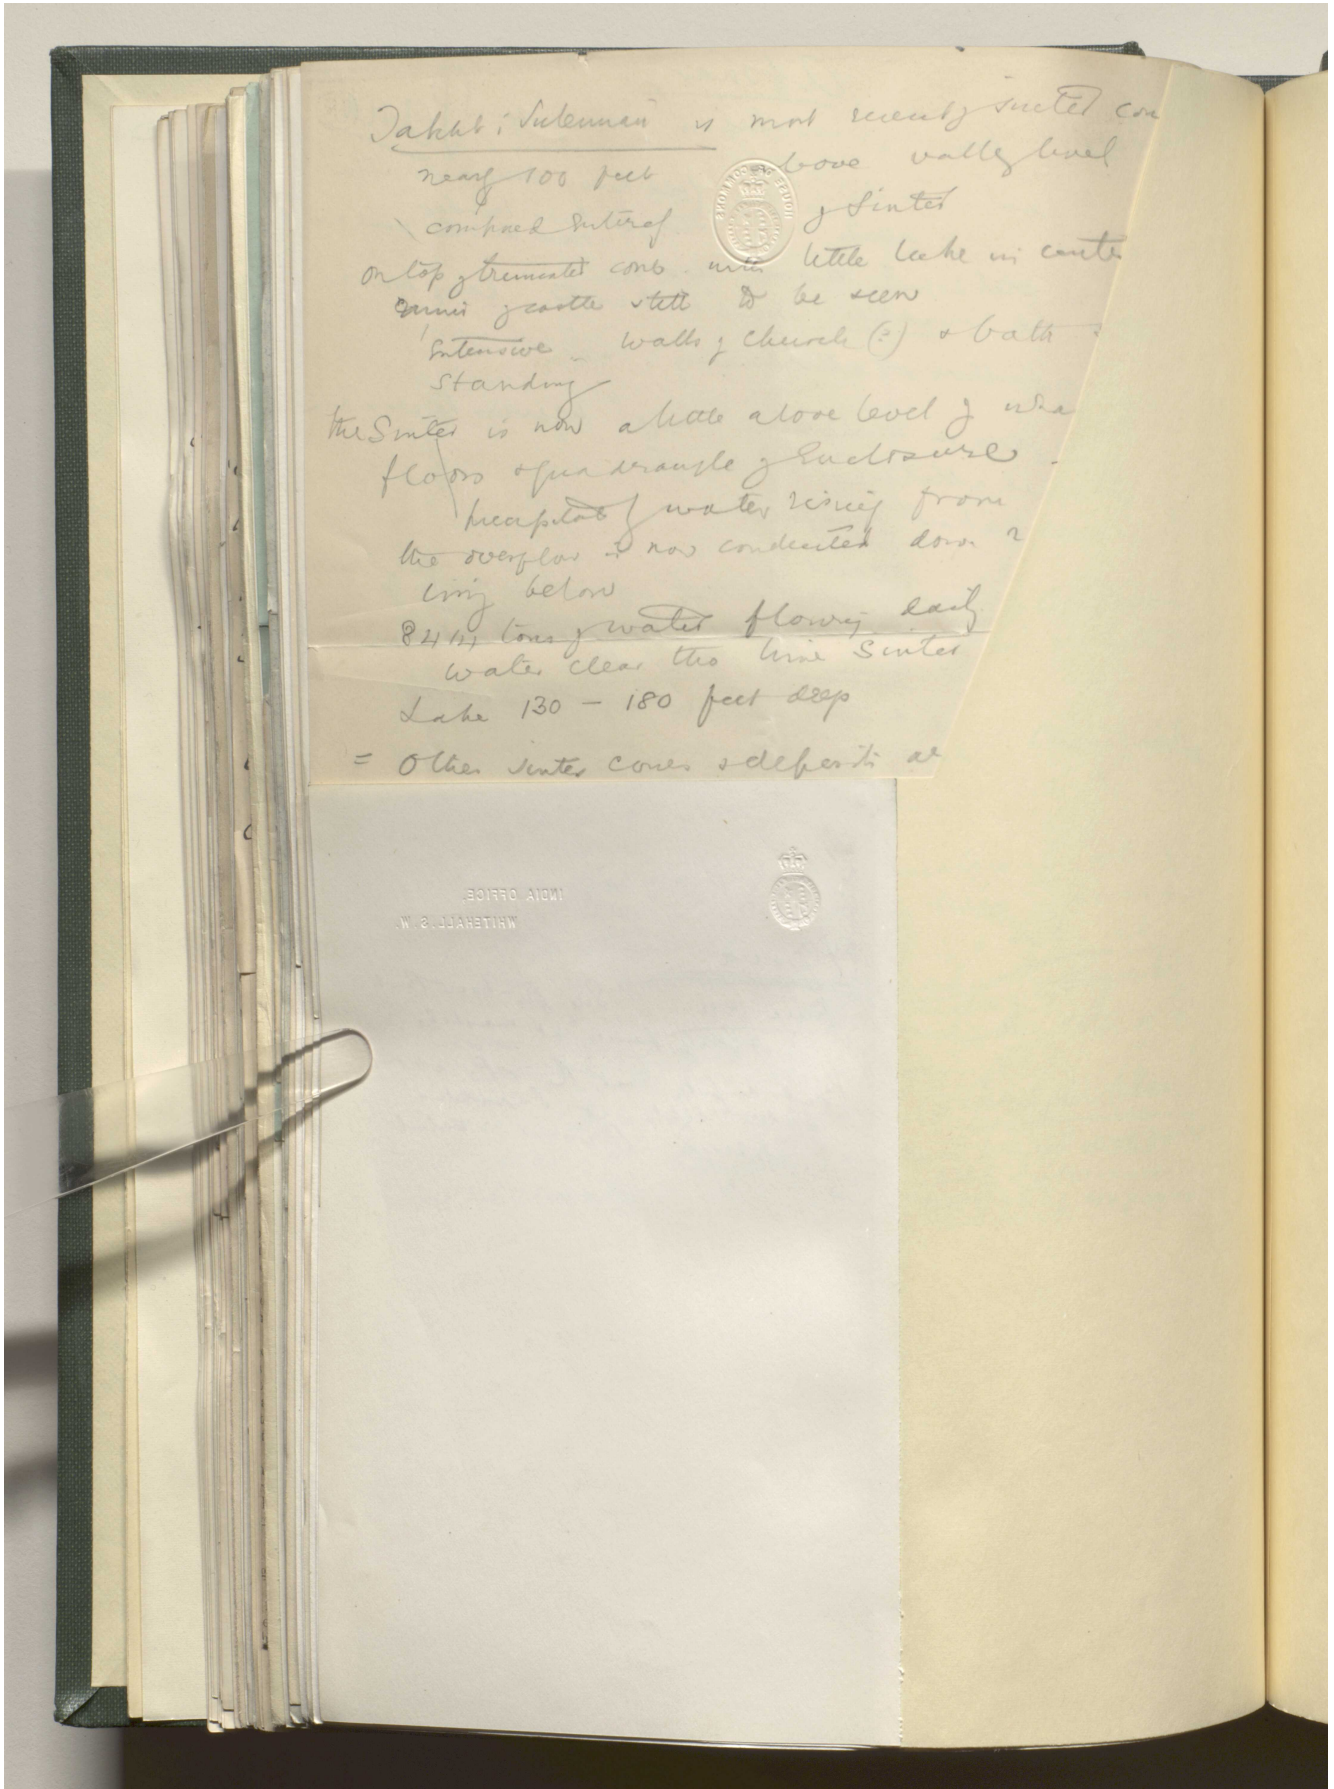 Takht i Suleiman is most recently sinter con
nearly 100 feet above valley level
composed entirely of Sinter
on top of truncated cone with little lake in centre
ruins of castle still to be seen
extensive walls of church (?) & bath
standing
the Sinter is now a little above level of
floors & quadrangle of Enclosure
of water rising from
the overflow is now conducted down
below
tons of water flowing daily
water clear tho lime Sinter
Lake 130 – 180 feet deep
= Other sinter cones & deposits
HOUSE OF COMMONS
INDIA OFFICE,
WHITEHALL. S. W.